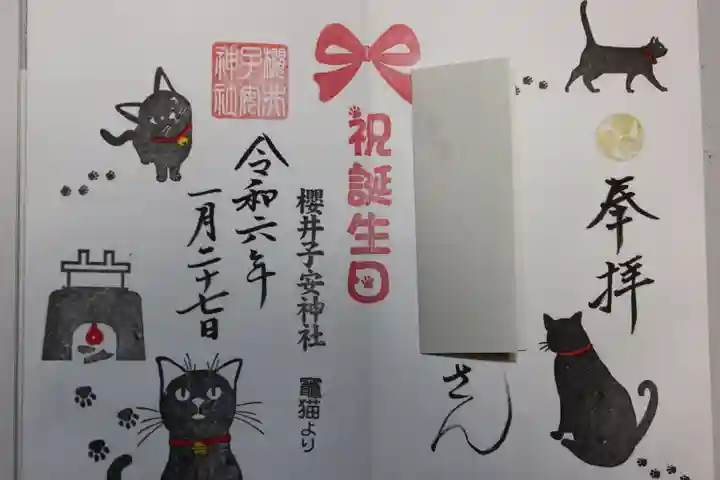 奉拝
さん
祝誕生日
櫻井子安神社 竈猫より
令和六年
一月二十七日
櫻井
子安
神社